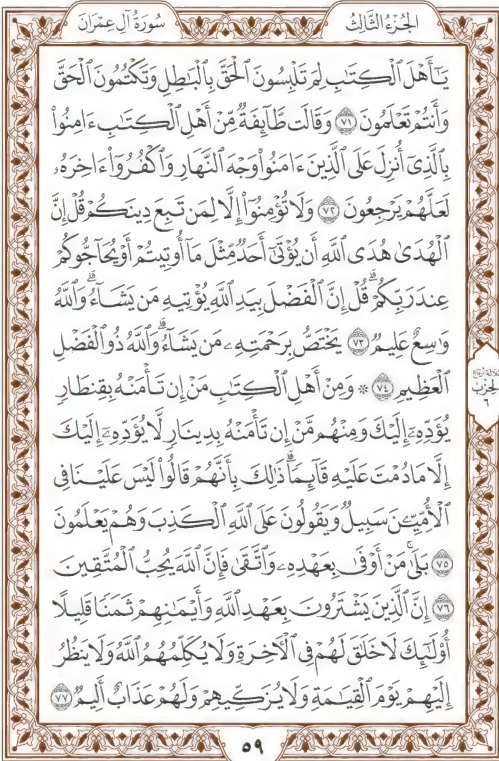 سُورَةُ آلِ عِمْرَانَ
الجُزْءُ الثَّالِثُ
يَٰٓأَهْلَ ٱلْكِتَٰبِ لِمَ تَلْبِسُونَ ٱلْحَقَّ بِٱلْبَٰطِلِ وَتَكْتُمُونَ ٱلْحَقَّ
وَأَنتُمْ تَعْلَمُونَ ٧١ وَقَالَت طَّآئِفَةٌ مِّنْ أَهْلِ ٱلْكِتَٰبِ ءَامِنُوا۟
بِٱلَّذِىٓ أُنزِلَ عَلَى ٱلَّذِينَ ءَامَنُوا۟ وَجْهَ ٱلنَّهَارِ وَٱكْفُرُوٓا۟ ءَاخِرَهُۥ
لَعَلَّهُمْ يَرْجِعُونَ ٧٢ وَلَا تُؤْمِنُوٓا۟ إِلَّا لِمَن تَبِعَ دِينَكُمْ قُلْ إِنَّ
ٱلْهُدَىٰ هُدَى ٱللَّهِ أَن يُؤْتَىٰٓ أَحَدٌ مِّثْلَ مَآ أُوتِيتُمْ أَوْ يُحَآجُّوكُمْ
عِندَ رَبِّكُمْ ۗ قُلْ إِنَّ ٱلْفَضْلَ بِيَدِ ٱللَّهِ يُؤْتِيهِ مَن يَشَآءُ ۗ وَٱللَّهُ
وَٰسِعٌ عَلِيمٌ ٧٣ يَخْتَصُّ بِرَحْمَتِهِۦ مَن يَشَآءُ ۗ وَٱللَّهُ ذُو ٱلْفَضْلِ
ٱلْعَظِيمِ ٧٤ ۞ وَمِنْ أَهْلِ ٱلْكِتَٰبِ مَنْ إِن تَأْمَنْهُ بِقِنطَارٍ
يُؤَدِّهِۦٓ إِلَيْكَ وَمِنْهُم مَّنْ إِن تَأْمَنْهُ بِدِينَارٍ لَّا يُؤَدِّهِۦٓ إِلَيْكَ
إِلَّا مَا دُمْتَ عَلَيْهِ قَآئِمًا ۗ ذَٰلِكَ بِأَنَّهُمْ قَالُوا۟ لَيْسَ عَلَيْنَا فِى
ٱلْأُمِّيِّـۧنَ سَبِيلٌ وَيَقُولُونَ عَلَى ٱللَّهِ ٱلْكَذِبَ وَهُمْ يَعْلَمُونَ
٧٥ بَلَىٰ مَنْ أَوْفَىٰ بِعَهْدِهِۦ وَٱتَّقَىٰ فَإِنَّ ٱللَّهَ يُحِبُّ ٱلْمُتَّقِينَ
٧٦ إِنَّ ٱلَّذِينَ يَشْتَرُونَ بِعَهْدِ ٱللَّهِ وَأَيْمَٰنِهِمْ ثَمَنًا قَلِيلًا
أُو۟لَٰٓئِكَ لَا خَلَٰقَ لَهُمْ فِى ٱلْءَاخِرَةِ وَلَا يُكَلِّمُهُمُ ٱللَّهُ وَلَا يَنظُرُ
إِلَيْهِمْ يَوْمَ ٱلْقِيَٰمَةِ وَلَا يُزَكِّيهِمْ وَلَهُمْ عَذَابٌ أَلِيمٌ ٧٧
الحزب
٦
٥٩